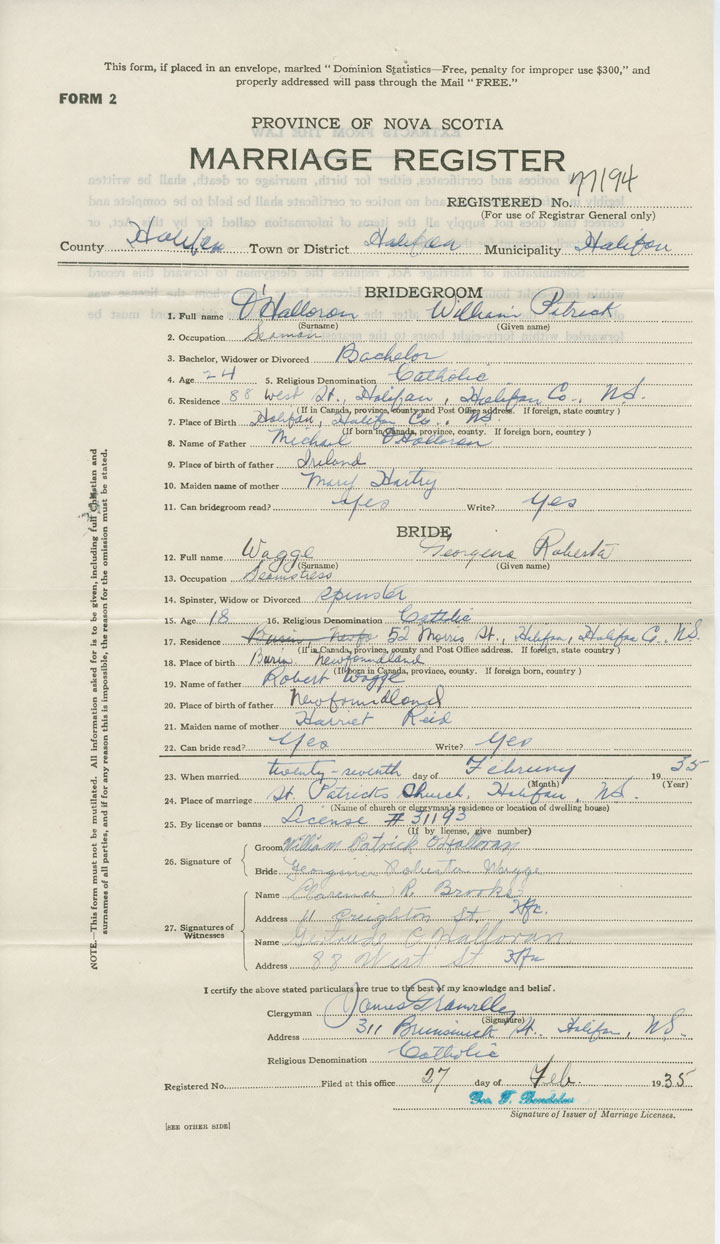 This form, if placed in an envelope, marked "Dominion Statistics—Free, penalty for improper use $300," and
properly addressed will pass through the Mail "FREE."
FORM 2
PROVINCE OF NOVA SCOTIA
MARRIAGE REGISTER
REGISTERED No. 77194
(For use of Registrar General only)
County Halifax Town or District Halifax Municipality Halifax
BRIDEGROOM
1. Full name O'Halloran William Patrick
(Surname) (Given name)
2. Occupation Seaman
3. Bachelor, Widower or Divorced Bachelor
4. Age 24 5. Religious Denomination Catholic
6. Residence 88 West St., Halifax, Halifax Co., N.S.
(If in Canada, province, county and Post Office address. If foreign, state country)
7. Place of Birth Halifax, Halifax Co., N.S.
(If born in Canada, province, county. If foreign born, country)
8. Name of Father Michael O'Halloran
9. Place of birth of father Ireland
10. Maiden name of mother Mary Hartry
11. Can bridegroom read? Yes Write? Yes
BRIDE
12. Full name Wagge Georgina Roberta
(Surname) (Given name)
13. Occupation Seamstress
14. Spinster, Widow or Divorced Spinster
15. Age 18 16. Religious Denomination Catholic
17. Residence 52 Morris St., Halifax, Halifax Co., N.S.
(If in Canada, province, county and Post Office address. If foreign, state country)
18. Place of birth Burin Newfoundland
(If born in Canada, province, county. If foreign born, country)
19. Name of father Robert Wagge
20. Place of birth of father Newfoundland
21. Maiden name of mother Harriet Reid
22. Can bride read? Yes Write? Yes
23. When married twenty-seventh day of February 1935
(Month) (Year)
24. Place of marriage St. Patricks Church, Halifax, N.S.
(Name of church or clergyman's residence or location of dwelling house)
25. By license or banns License # 31193
(If by license, give number)
26. Signature of
Groom William Patrick O'Halloran
Bride Georgina Roberta Wagge
27. Signatures of Witnesses
Name Clarence R. Brooks
Address 11 Creighton St. Hfx.
Name Gertrude O'Halloran
Address 88 West St Hfx
I certify the above stated particulars are true to the best of my knowledge and belief.
Clergyman James Granville
(Signature)
Address 311 Brunswick St. Halifax, N.S.
Religious Denomination Catholic
Registered No. Filed at this office 27 day of Feb. 1935
Geo. F.
Signature of Issuer of Marriage Licenses.
[SEE OTHER SIDE]
NOTE.—This form must not be mutilated. All information asked for is to be given, including full Christian and
surnames of all parties, and if for any reason this is impossible, the reason for the omission must be stated.